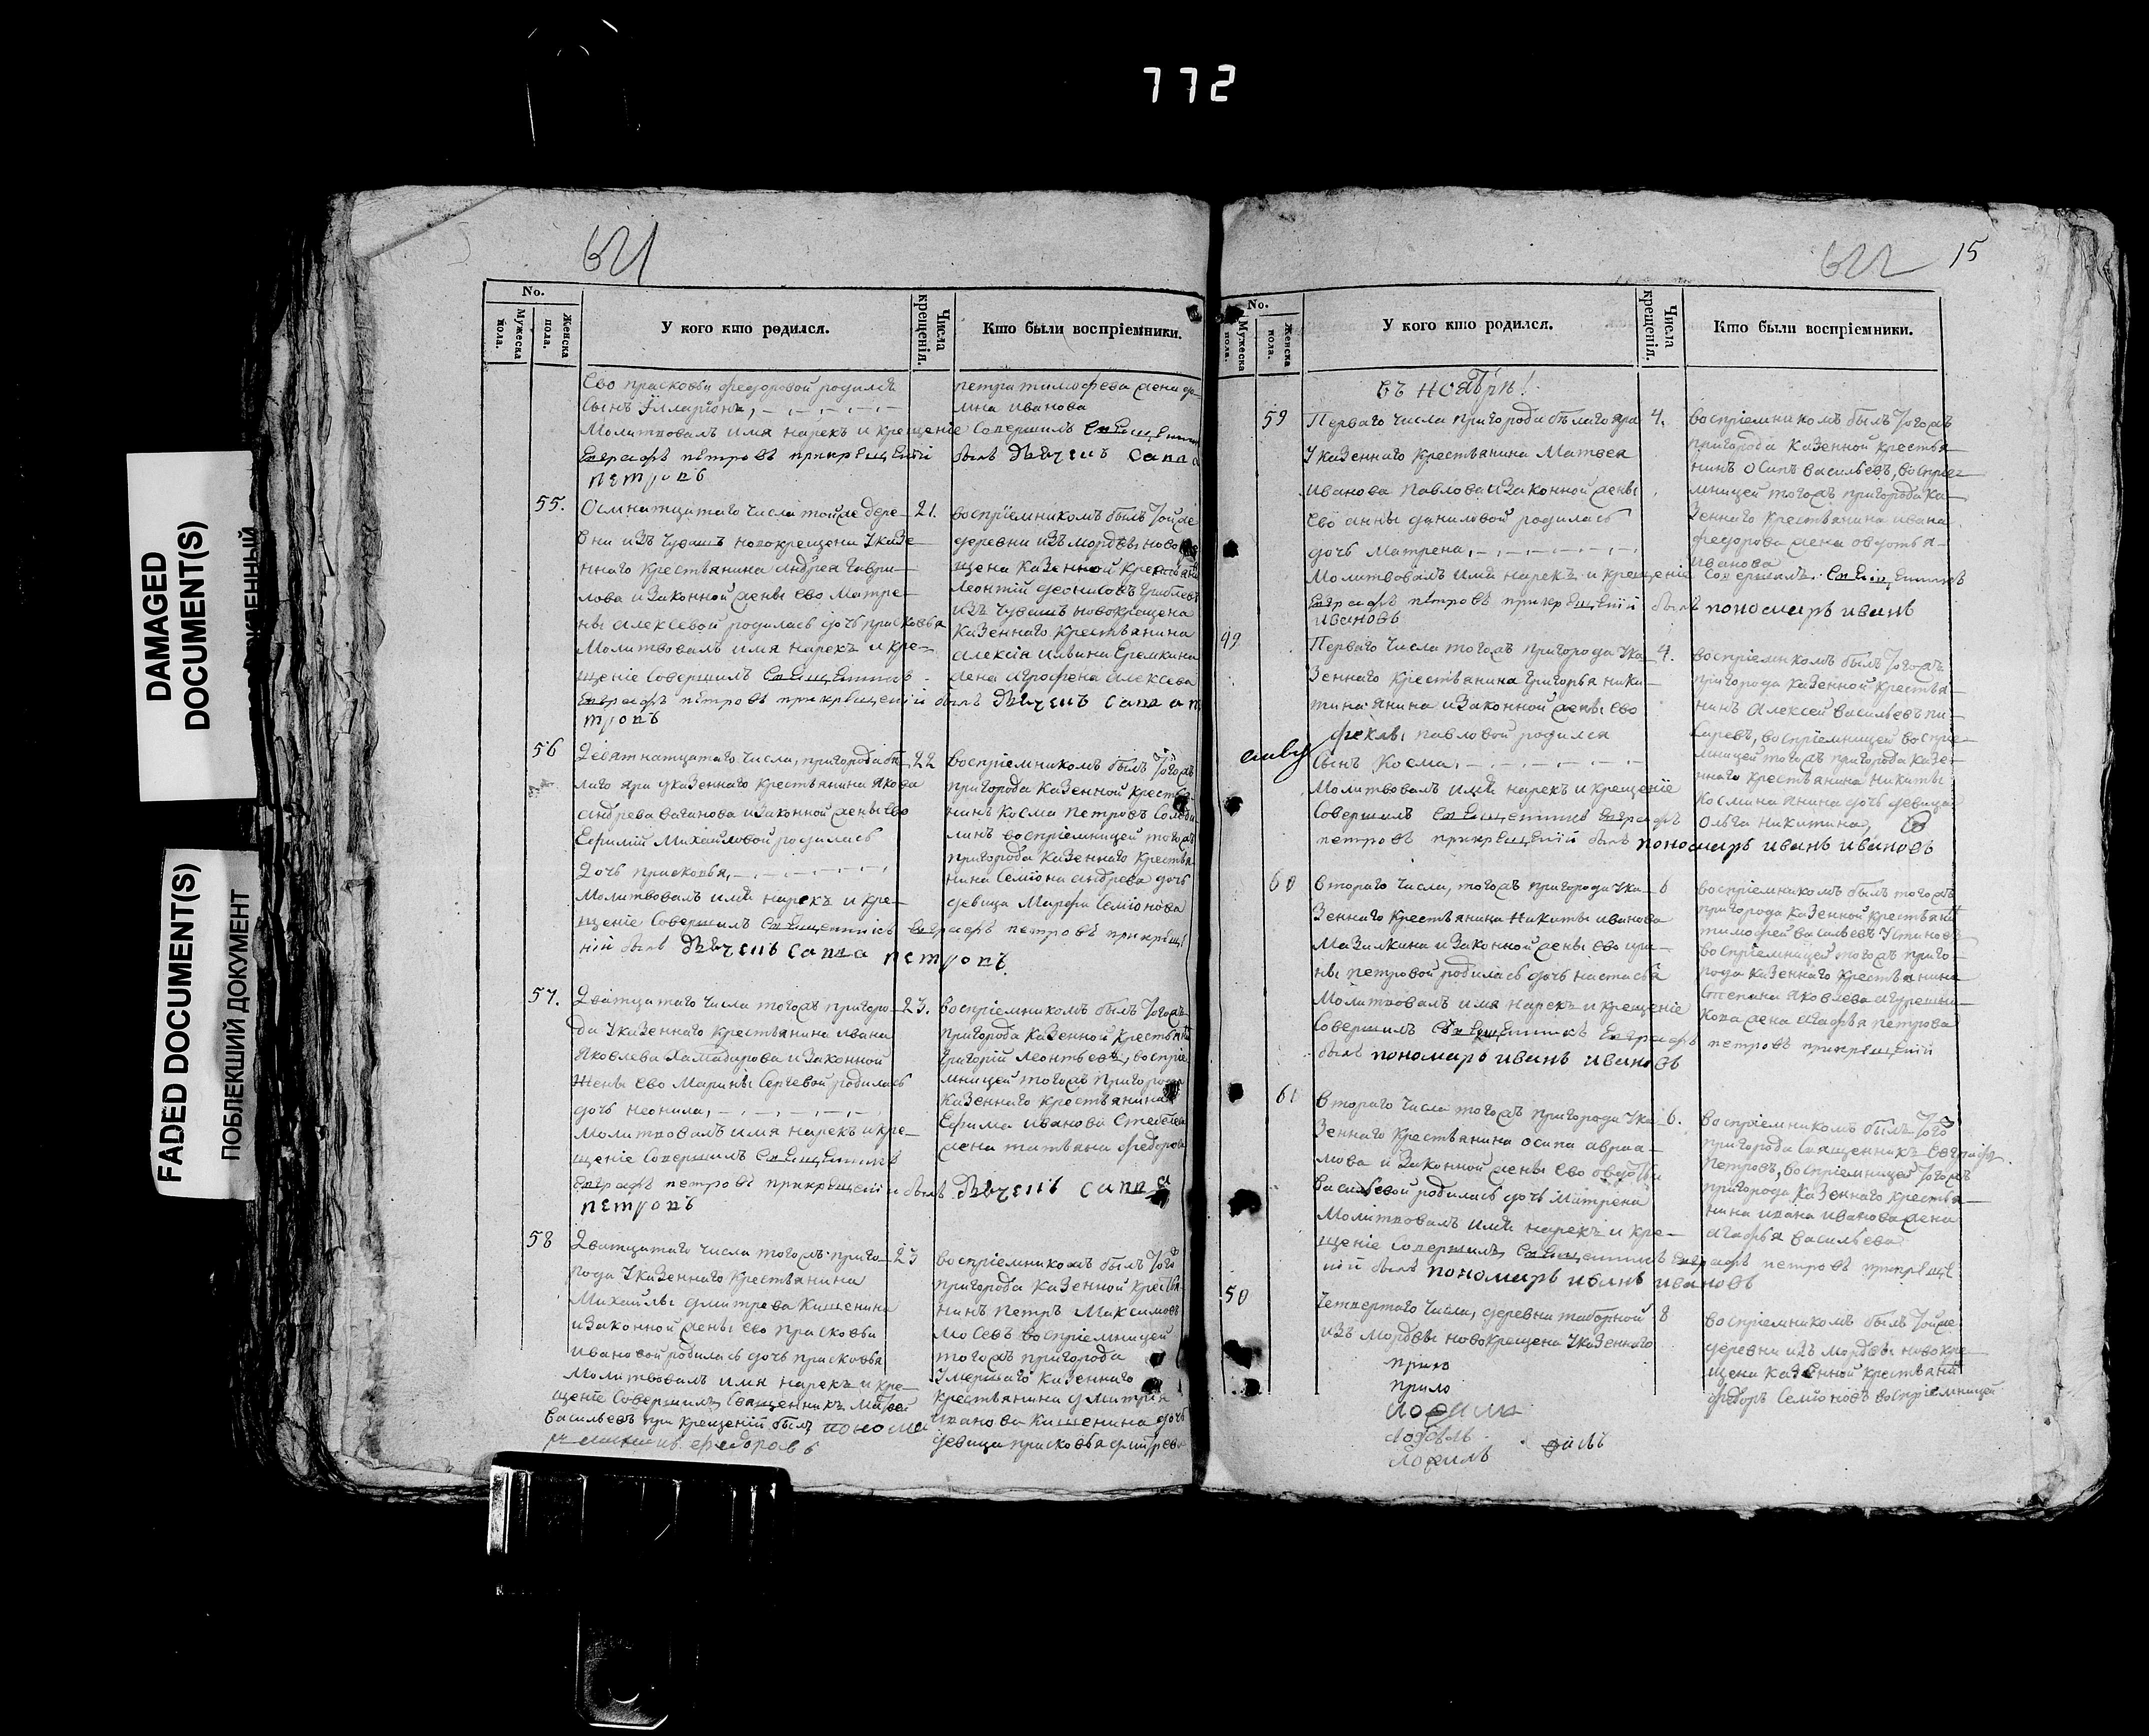 772
DAMAGED
DOCUMENT(S)
FADED DOCUMENT(S)
ПОБЛЕКШИЙ ДОКУМЕНТ
621
No.
Мужеска пола.
Женска пола.
У кого кто родился.
Числа крещенія.
Кто были воспріемники.
Ево прасковьи федоровой родился
сынъ
Молитвовалъ имя нарекъ и крещеніе совершилъ Священникъ
Евграфъ петровъ прикрещеніи
петровъ
петра тимофева жена до-
мна иванова
былъ дьячекъ савва
55.
Осмнатцатаго числа тойже дере-
вни изъ Чувашъ новокрещена Указе-
ннаго крестьянина андрея гаври-
лова изаконной жены ево матре-
ны алексевой родилась дочь прасковья
Молитвовалъ имя нарекъ и кре-
щеніе совершилъ Священникъ
Евграфъ петровъ прикрещеніи былъ дьячекъ савва пе
тровъ
21.
воспріемникомъ былъ тойже
деревни изъ мордвы ново
щена казенной
леонтій денисовъ
изъ чувашъ новокрещена
казеннаго крестьянина
алексія ильина Еремкина
жена агрофена алексева
56
Девятнатцатаго числа, пригорода бѣ-
лаго яра указеннаго крестьянина якова
андрева ваганова изаконной жены ево
Ефиміи Михайловой родилась
дочь прасковья,
Молитвовалъ имя нарекъ и кре-
щеніе совершилъ Священникъ Евграфъ петровъ прикреще
ніи былъ дьячекъ савва петровъ.
22
воспріемникомъ былъ тогожъ
пригорода казенной крестья-
нинъ косма петровъ
воспріемницей тогожъ
пригорода казеннаго крестья
нина семіона андрева дочь
девица Марфа семіонова
57.
Дватцатаго числа тогожъ пригоро-
да Указеннаго крестьянина ивана
яковлева изаконной
жены ево Марины сергевой родилась
дочь неонила,
молитвовалъ имя нарекъ и кре-
щеніе совершилъ Священникъ
Евграфъ петровъ прикрещеніи былъ дьячекъ савва
петровъ
23.
воспріемникомъ былъ тогожъ
пригорода казенной
григорій леонтьевъ, воспріе-
мницей тогожъ пригорода
казеннаго крестьянина
Ефима иванова
жена татьяна федорова
58
Дватцатаго числа тогожъ приго-
рода Указеннаго крестьянина
Михайлы дмитрева Кишенина
изаконной жены ево прасковьи
ивановой родилась дочь прасковья
Молитвовалъ имя нарекъ и кре-
щеніе совершилъ Священникъ матвей
васильевъ при крещеніи былъ
федоровъ
23
воспріемникомъ былъ того
пригорода казенной крестья
нинъ петръ максимовъ
воспріемницей
тогожъ пригорода
Умершаго казеннаго
крестьянина дмитрія
иванова кишенина дочь
девица прасковья дмитрева
622
15
No.
Мужеска пола.
Женска пола.
У кого кто родился.
Числа крещенія.
Кто были воспріемники.
въ ноябрѣ!
59
Перваго числа пригорода бѣлаго яра
Указеннаго крестьянина Матвея
иванова павлова изаконной жены
ево анны даниловой родилась
дочь матрена,
Молитвовалъ имя нарекъ и крещеніе совершилъ Священникъ
Евграфъ петровъ прикрещеніи былъ пономарь иванъ
ивановъ
4.
воспріемникомъ былъ тогожъ
пригорода казенной крестья
нинъ осипъ васильевъ, воспріе-
мницей тогожъ пригорода ка-
зеннаго крестьянина ивана
федорова жена овдотья
иванова
49
Перваго числа тогожъ пригорода Ука-
зеннаго крестьянина григорья ники-
тина янина изаконной жены ево
феклы павловой родился
сынъ косма,
Молитвовалъ имя нарекъ и крещеніе
совершилъ Священникъ Евграфъ
петровъ прикрещеніи былъ пономарь иванъ ивановъ
4.
воспріемникомъ былъ тогожъ
пригорода казенной крестья-
нинъ алексей васильевъ пи-
саревъ, воспріемницей воспріе-
мницей тогожъ пригорода казе-
ннаго крестьянина никиты
космина янина дочь девица
ольга никитина,
60
втораго числа, тогожъ пригорода Ука-
зеннаго крестьянина никиты иванова
Мазилкина изаконной жены ево ири-
ны петровой родилась дочь настасья
Молитвовалъ имя нарекъ и крещеніе
совершилъ Священникъ Евграфъ петровъ прикрещеніи
былъ пономарь иванъ ивановъ
6
воспріемникомъ былъ тогожъ
пригорода казенной крестьяни
тимофей васильевъ Устиновъ
воспріемницей тогожъ приго-
рода казеннаго крестьянина
степана яковлева
жена агафья петрова
61
втораго числа тогожъ пригорода Ука-
зеннаго крестьянина осипа авраа-
мова изаконной жены ево овдотьи
васильевой родилась дочь матрена
Молитвовалъ имя нарекъ и кре-
щеніе совершилъ Священникъ Евграфъ петровъ прикреще
ніи былъ пономарь иванъ ивановъ
6.
воспріемникомъ былъ того
пригорода священникъ Евграфъ
петровъ, воспріемницей тогожъ
пригорода казеннаго крестья-
нина ивана иванова жена
агафья васильева
50
Четвертаго числа, деревни таборной
изъ Мордвы новокрещена указеннаго
8
воспріемникомъ былъ тойже
деревни изъ мордвы новокре-
щена казенной крестьяни
федоръ семіоновъ воспріемницей